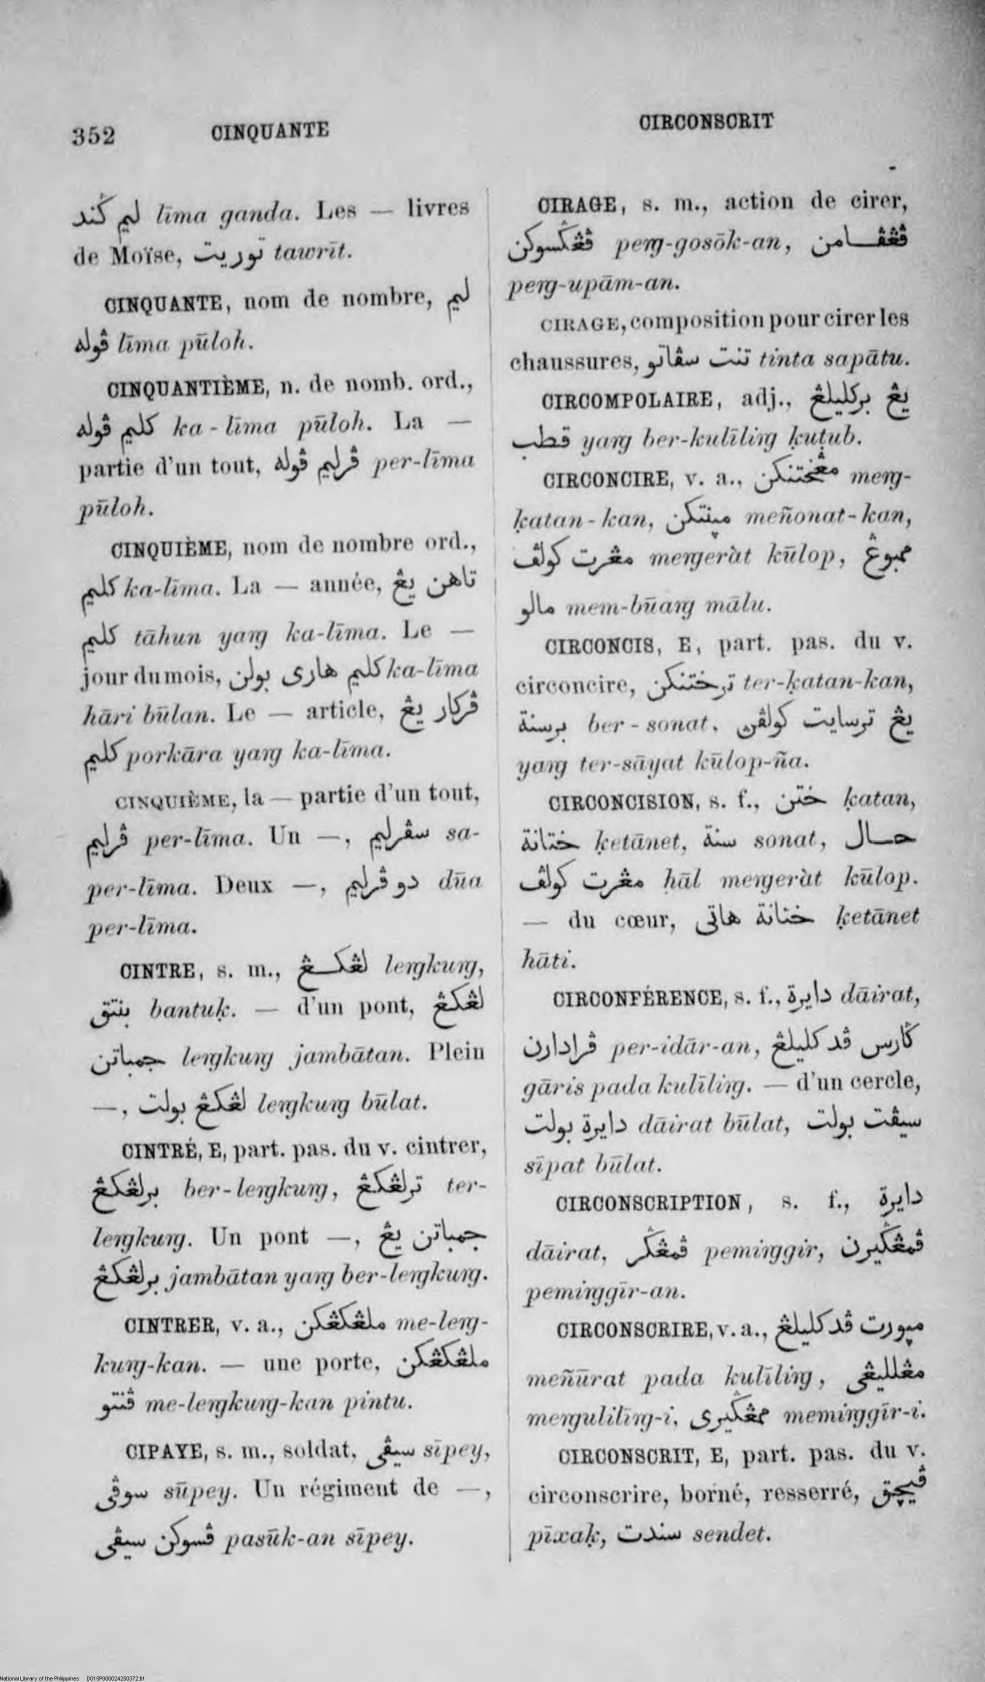 352
CINQUANTE
CIRCONSCRIT
ليم ڬند līma ganda. Les — livres
de Moïse, توريت tawrīt.
CINQUANTE, nom de nombre, ليم
ڤوله līma pūloh.
CINQUANTIÈME, n. de nomb. ord.,
كليم ڤوله ka-līma pūloh. La —
partie d'un tout, ڤرليم ڤوله per-līma
pūloh.
CINQUIÈME, nom de nombre ord.,
كليم ka-līma. La — année, تاهن يڠ
كليم tāhun yaƞg ka-līma. Le —
jour du mois, كليم هاري بولن ka-līma
hāri būlan. Le — article, ڤركار يڠ
كليم porkāra yaƞg ka-līma.
CINQUIÈME, la — partie d'un tout,
ڤرليم per-līma. Un —, سڤرليم sa-
per-līma. Deux —, دو ڤرليم dūa
per-līma.
CINTRE, s. m., لڠكڠ leƞgkuƞg,
بنتق bantuḳ. — d'un pont, لڠكڠ
جمباتن leƞgkuƞg jambātan. Plein
—, لڠكڠ بولت leƞgkuƞg būlat.
CINTRÉ, E, part. pas. du v. cintrer,
برلڠكڠ ber-leƞgkuƞg, ترلڠكڠ ter-
leƞgkuƞg. Un pont —, جمباتن يڠ
برلڠكڠ jambātan yaƞg ber-leƞgkuƞg.
CINTRER, v. a., ملڠكڠكن me-leƞg-
kuƞg-kan. — une porte, ملڠكڠكن
ڤنتو me-leƞgkuƞg-kan pintu.
CIPAYE, s. m., soldat, سيڤي sīpey,
سوڤي sūpey. Un régiment de —,
ڤسوكن سيڤي pasūk-an sīpey.
CIRAGE, s. m., action de cirer,
ڤڠڬسوكن peƞg-gosōk-an, ڤڠڤامن
peƞg-upām-an.
CIRAGE, composition pour cirer les
chaussures, تنت سڤاتو tinta sapātu.
CIRCOMPOLAIRE, adj., يڠ بركليلڠ
قطب yaƞg ber-kulīliƞg ḳuṭub.
CIRCONCIRE, v. a., مڠختنكن meƞg-
ḳatan-kan, مينتكن meñonat-kan,
مڠرت كولڤ meƞgeràt kūlop, ممبوڠ
مالو mem-būaƞg mālu.
CIRCONCIS, E, part. pas. du v.
circoncire, ترختنكن ter-ḳatan-kan,
برسنة ber-sonat, يڠ ترسايت كولڤن
yaƞg ter-sāyat kūlop-ña.
CIRCONCISION, s. f., ختن ḳatan,
ختانة ḳetānet, سنة sonat, حال
مڠرت كولڤ ḥāl meƞgeràt kūlop.
— du cœur, ختانة هاتي ḳetānet
hāti.
CIRCONFÉRENCE, s. f., دايرة dāirat,
ڤرادارن per-idār-an, ڬارس ڤد كليلڠ
gāris pada kulīliƞg. — d'un cercle,
دايرة بولت dāirat būlat, سيڤت بولت
sīpat būlat.
CIRCONSCRIPTION, s. f., دايرة
dāirat, ڤمڠڬر pemiƞggir, ڤمڠڬيرن
pemiƞggīr-an.
CIRCONSCRIRE, v. a., ميورت ڤد كليلڠ
meñūrat pada kulīliƞg, مڠلليڠي
meƞgulilīƞg-i, ممڠڬيري memiƞggīr-i.
CIRCONSCRIT, E, part. pas. du v.
circonscrire, borné, resserré, ڤيچق
pīxaḳ, سندت sendet.
National Library of the Philippines